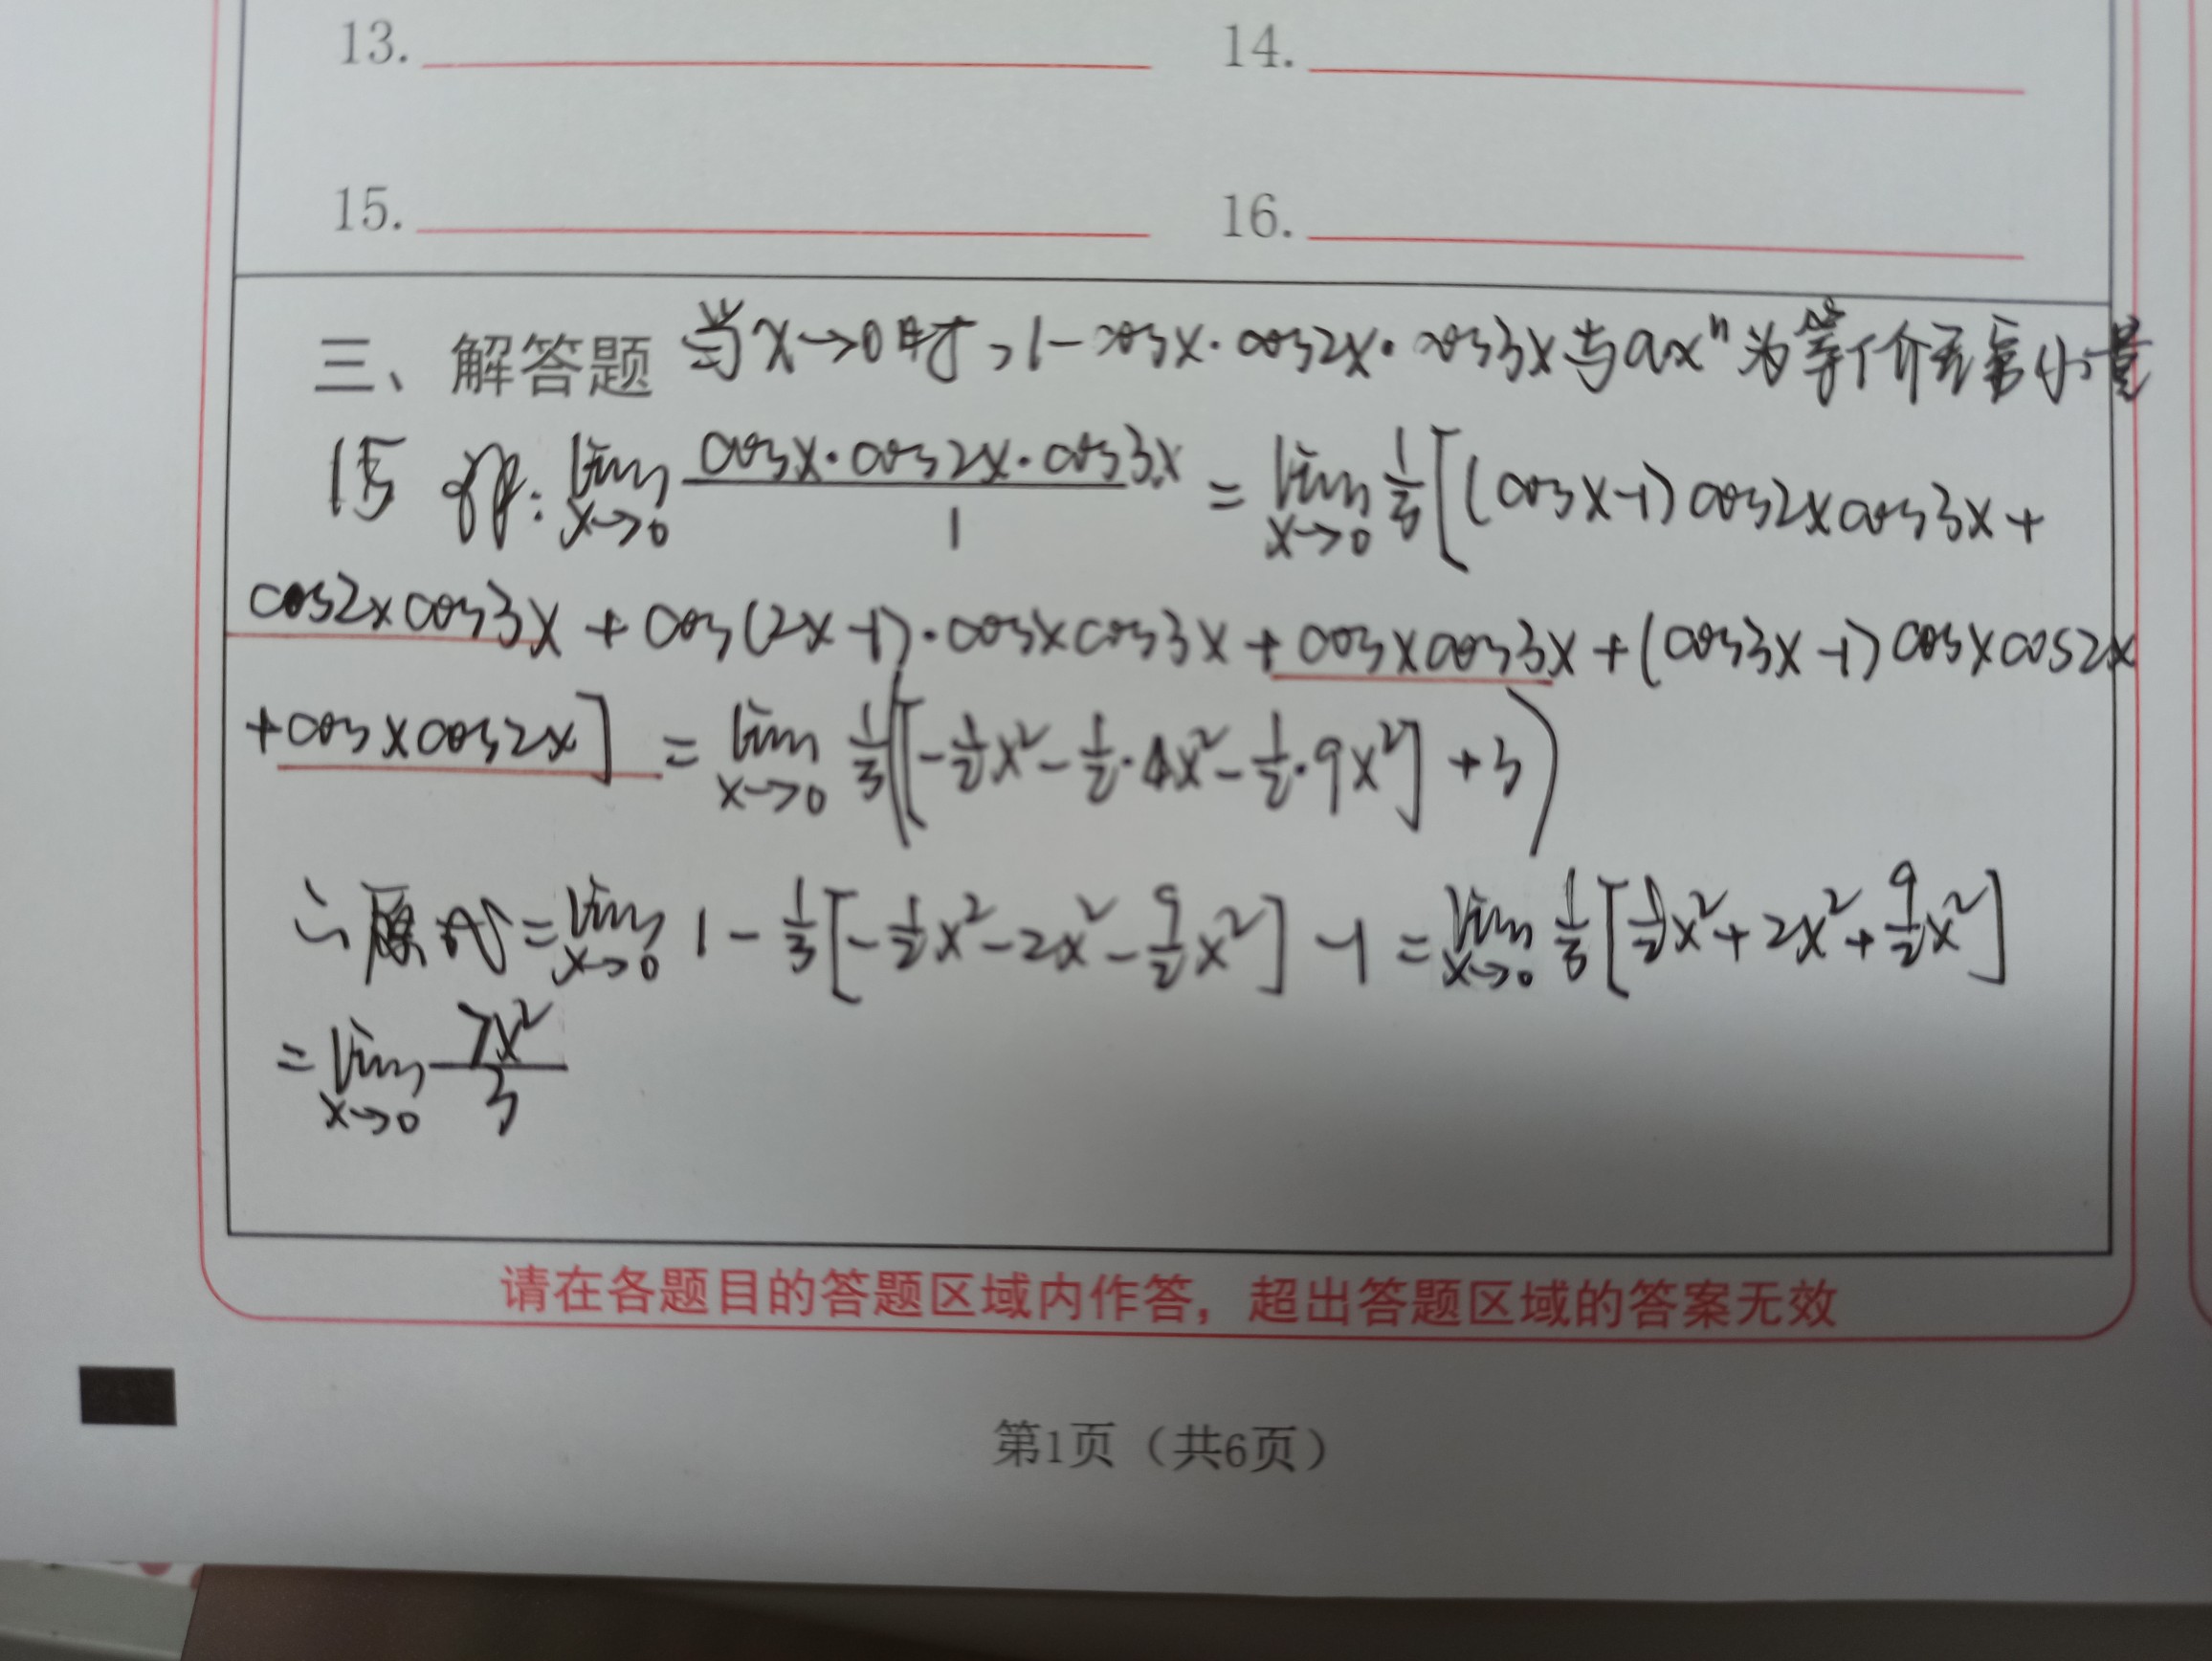 13. 14.
15. 16.
三、解答题 当x→0时,1-cosx·cos2x·cos3x与ax^n为等价无穷小量
15 解: lim x→0 (cosx·cos2x·cos3x)/1 = lim x→0 1/3[(cosx-1)cos2xcos3x+
cos2xcos3x+cos(2x-1)·cosxcos3x+cosxcos3x+(cos3x-1)cosxcos2x
+cosxcos2x] = lim x→0 1/3([-1/2x²-1/2·4x²-1/2·9x²]+3)
∴原式=lim x→0 1-1/3[-1/2x²-2x²-9/2x²]-1=lim x→0 1/3[1/2x²+2x²+9/2x²]
=lim x→0 7x²/3
请在各题目的答题区域内作答，超出答题区域的答案无效
第1页（共6页）